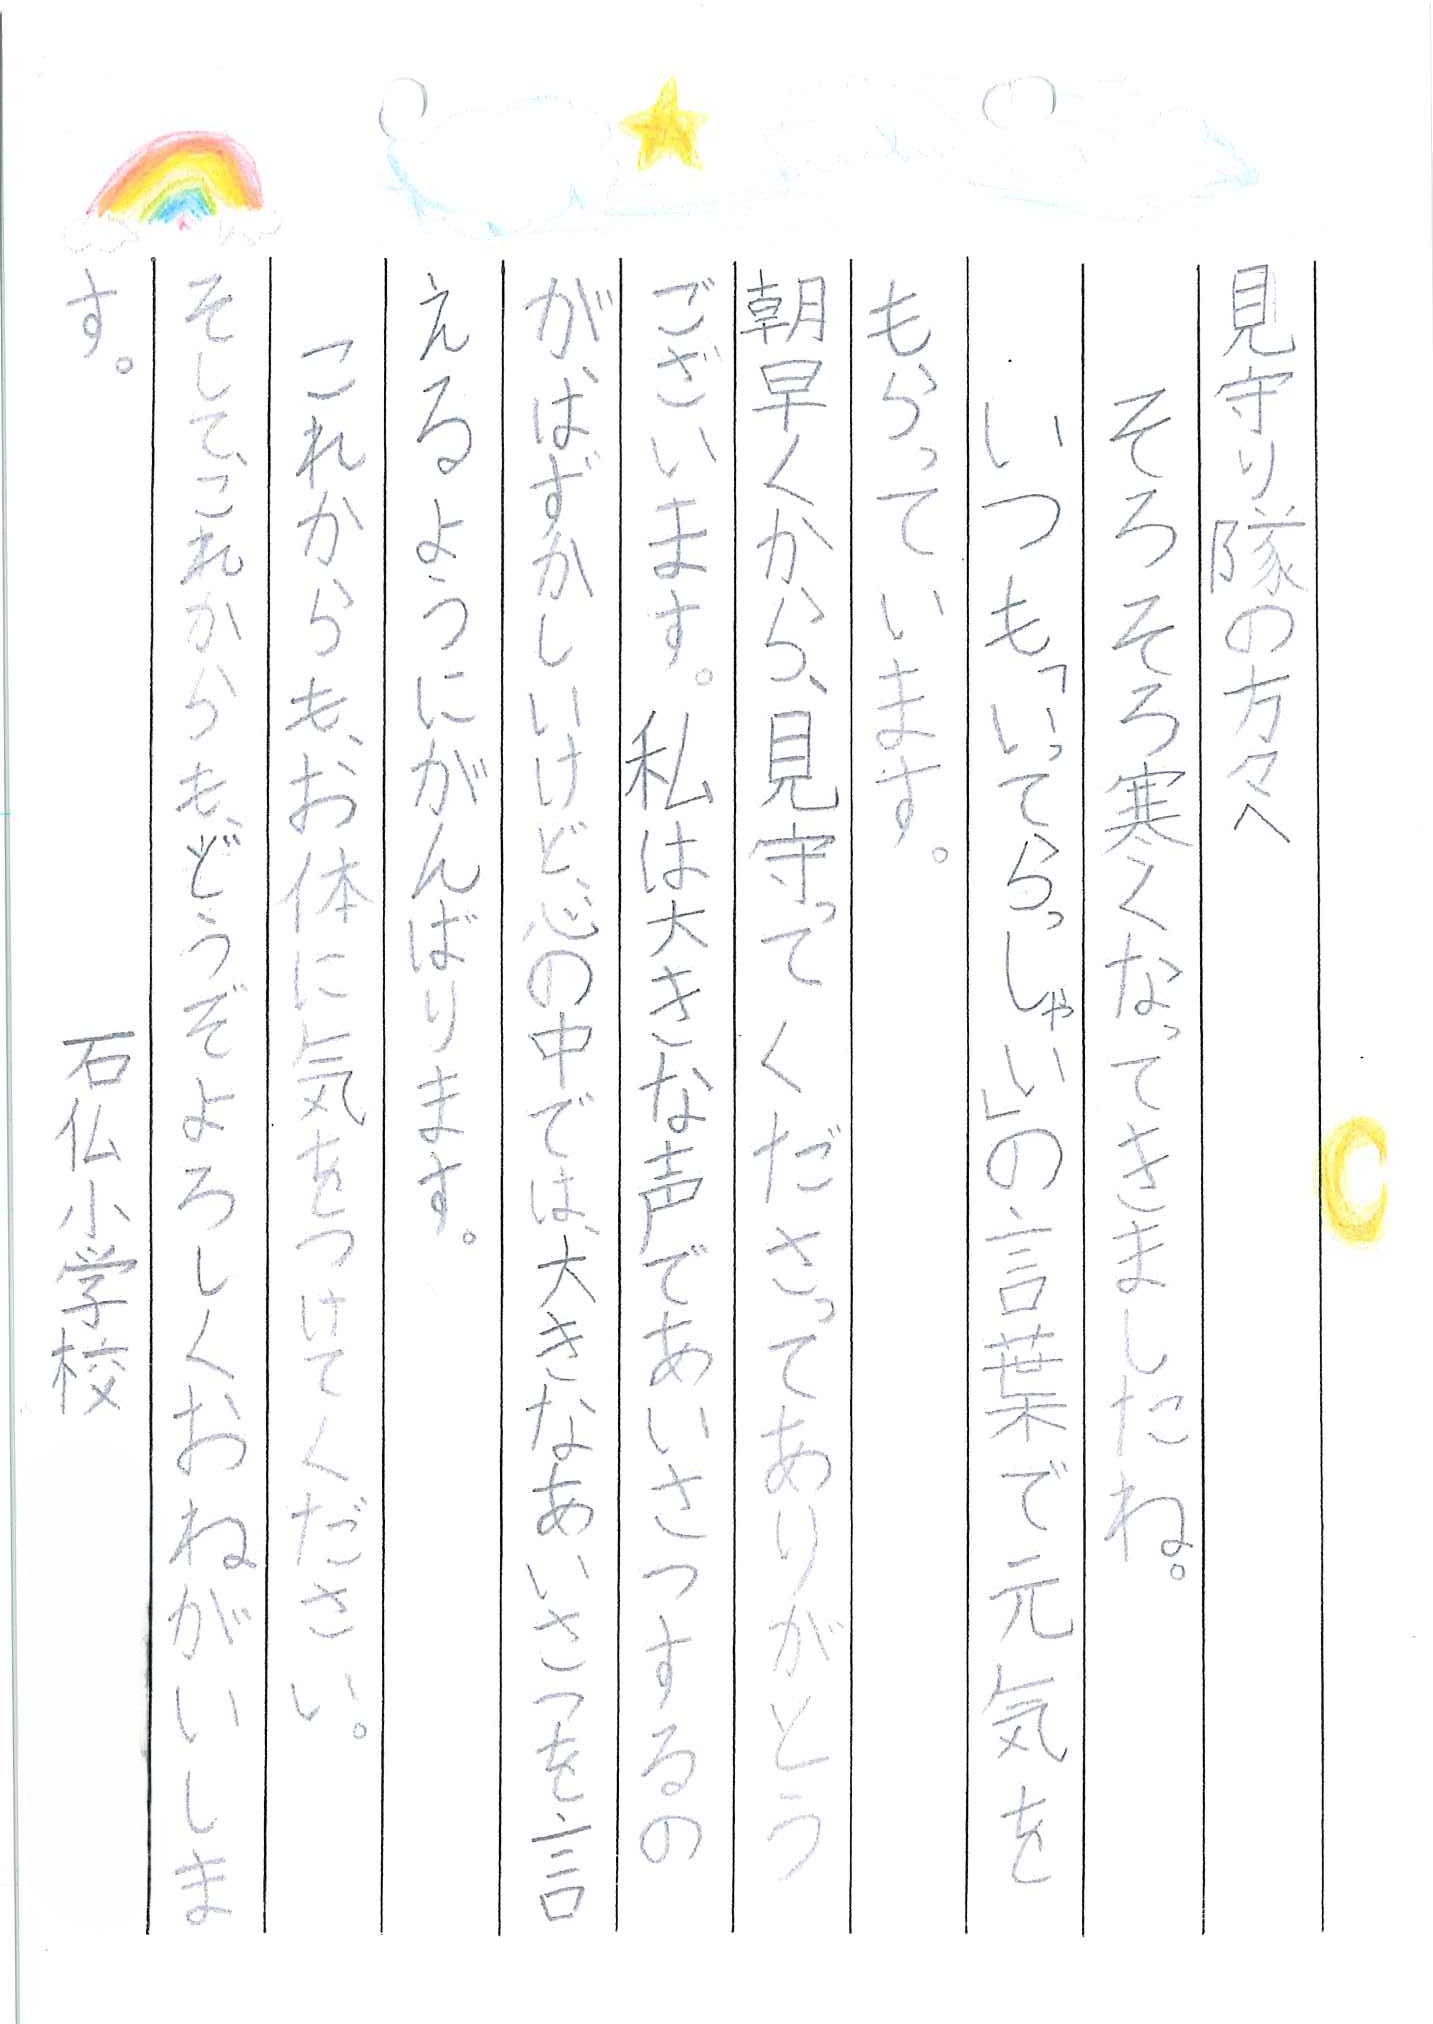 見守り隊の方々へ
そろそろ寒くなってきましたね。
いつも「いってらっしゃい」の言葉で元気を
もらっています。
朝早くから、見守ってくださってありがとう
ございます。私は大きな声であいさつするの
が、はずかしいけど、心の中では、大きなあいさつを言
えるようにがんばります。
これからも、お体に気をつけてください。
そして、これからも、どうぞよろしくおねがいしま
す。
石仏小学校